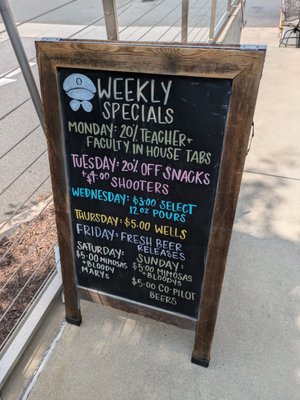 WEEKLY
SPECIALS
MONDAY: 20% TEACHER +
FACULTY IN HOUSE TABS
TUESDAY: 20% OFF SNACKS
+ $4.00 SHOOTERS
WEDNESDAY: $3.00 SELECT
12 OZ POURS
THURSDAY: $5.00 WELLS
FRIDAY: FRESH BEER
RELEASES
SATURDAY:
$5.00 MIMOSAS
+ BLOODY
MARYS
SUNDAY:
$5.00 MIMOSAS
+ BLOODYS
$5.00 CO-PILOT
BEERS